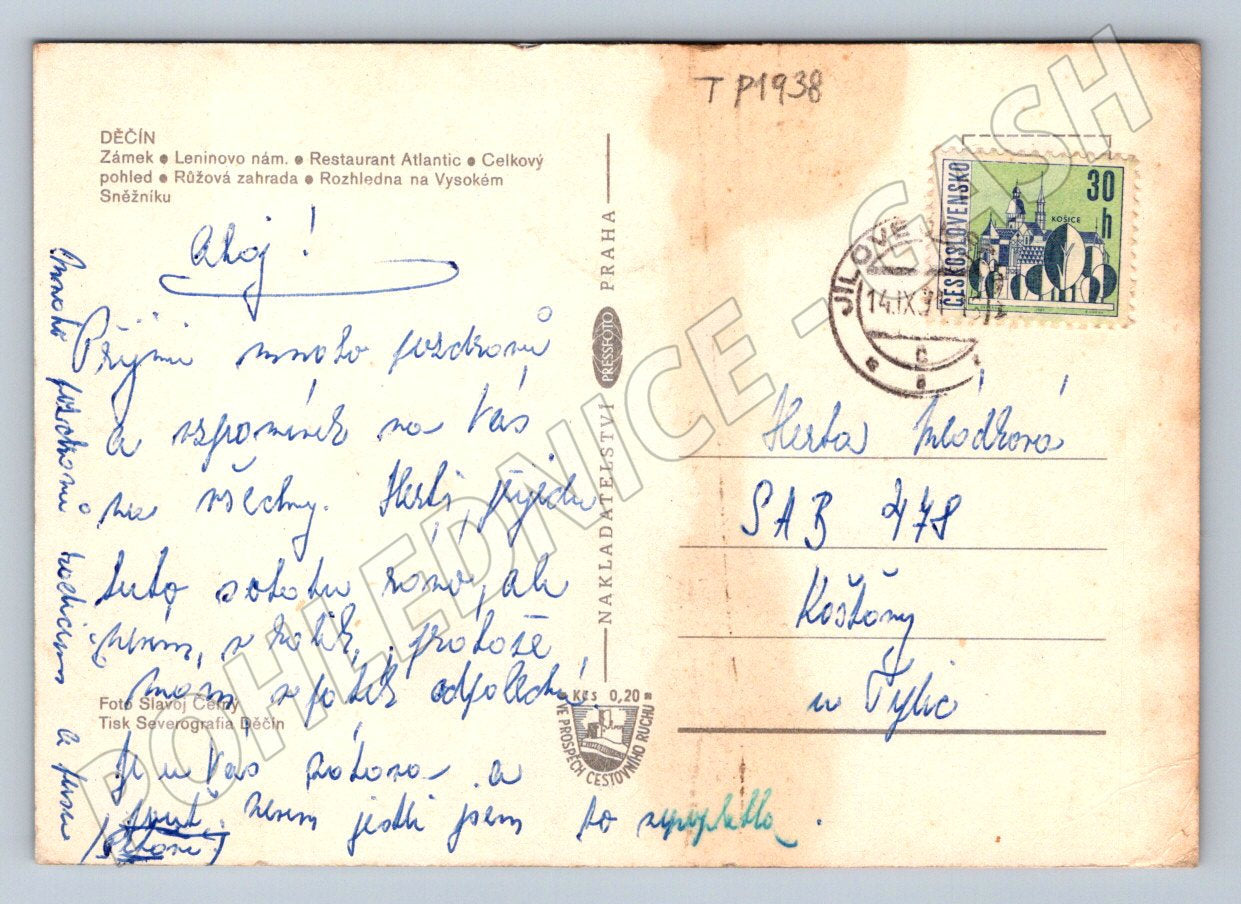 T P1938
DĚČÍN
Zámek ● Leninovo nám. ● Restaurant Atlantic ● Celkový
pohled ● Růžová zahrada ● Rozhledna na Vysokém
Sněžníku
Ahoj!
Přijmi mnoho pozdravů
a vzpomínek na Vás
na všechny. Herti, přijedu
tuto sobotu ráno, ale
nevím, v kolik, protože
mám, zpátek odpoledne
Je u Vás zábava a
nevím jestli jsem to nepopletla.
Mnoho pozdravů rodičům a
Foto Slavoj Černý
Tisk Severografia Děčín
NAKLADATELSTVÍ PRESSFOTO PRAHA
Kčs 0,20
VE PROSPĚCH CESTOVNÍHO RUCHU
ČESKOSLOVENSKO
30 h
KOŠICE
JÍLOVÉ
14.IX
Herta Mládková
SAB 478
Košťany
u Týlic
POHLEDNICE - GASH